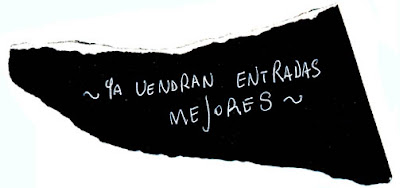 ~ YA VENDRAN ENTRADAS
MEJORES ~